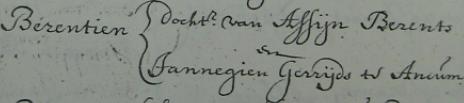 Berentien { docht.r van Assijn Berents
en
Jannegien Gerrijds tv Ancum